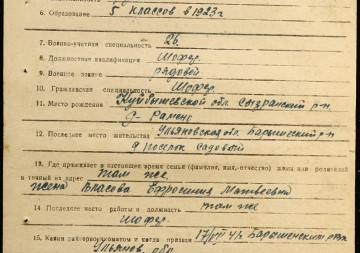 6. Образование 5 классов в 1923 г.
7. Военно-учетная специальность 26.
8. Должностная квалификация Шофер.
9. Военное звание рядовой
10. Гражданская специальность Шофер.
11. Место рождения Куйбышевской обл. Сызранский р-н
д. Рамено
12. Последнее место жительства Ульяновская обл. Барышский р-н
поселок Садовый
13. Где проживает в настоящее время семья (фамилия, имя, отчество) жены или родителей
и точный их адрес там же.
жена Власова Ефросиния Матвеевна
14. Последнее место работы и должность там же
шофер.
15. Каким райгорвоенкоматом и когда призван 17/VII 41 г. Барышенским рвк
Ульянов. обл.